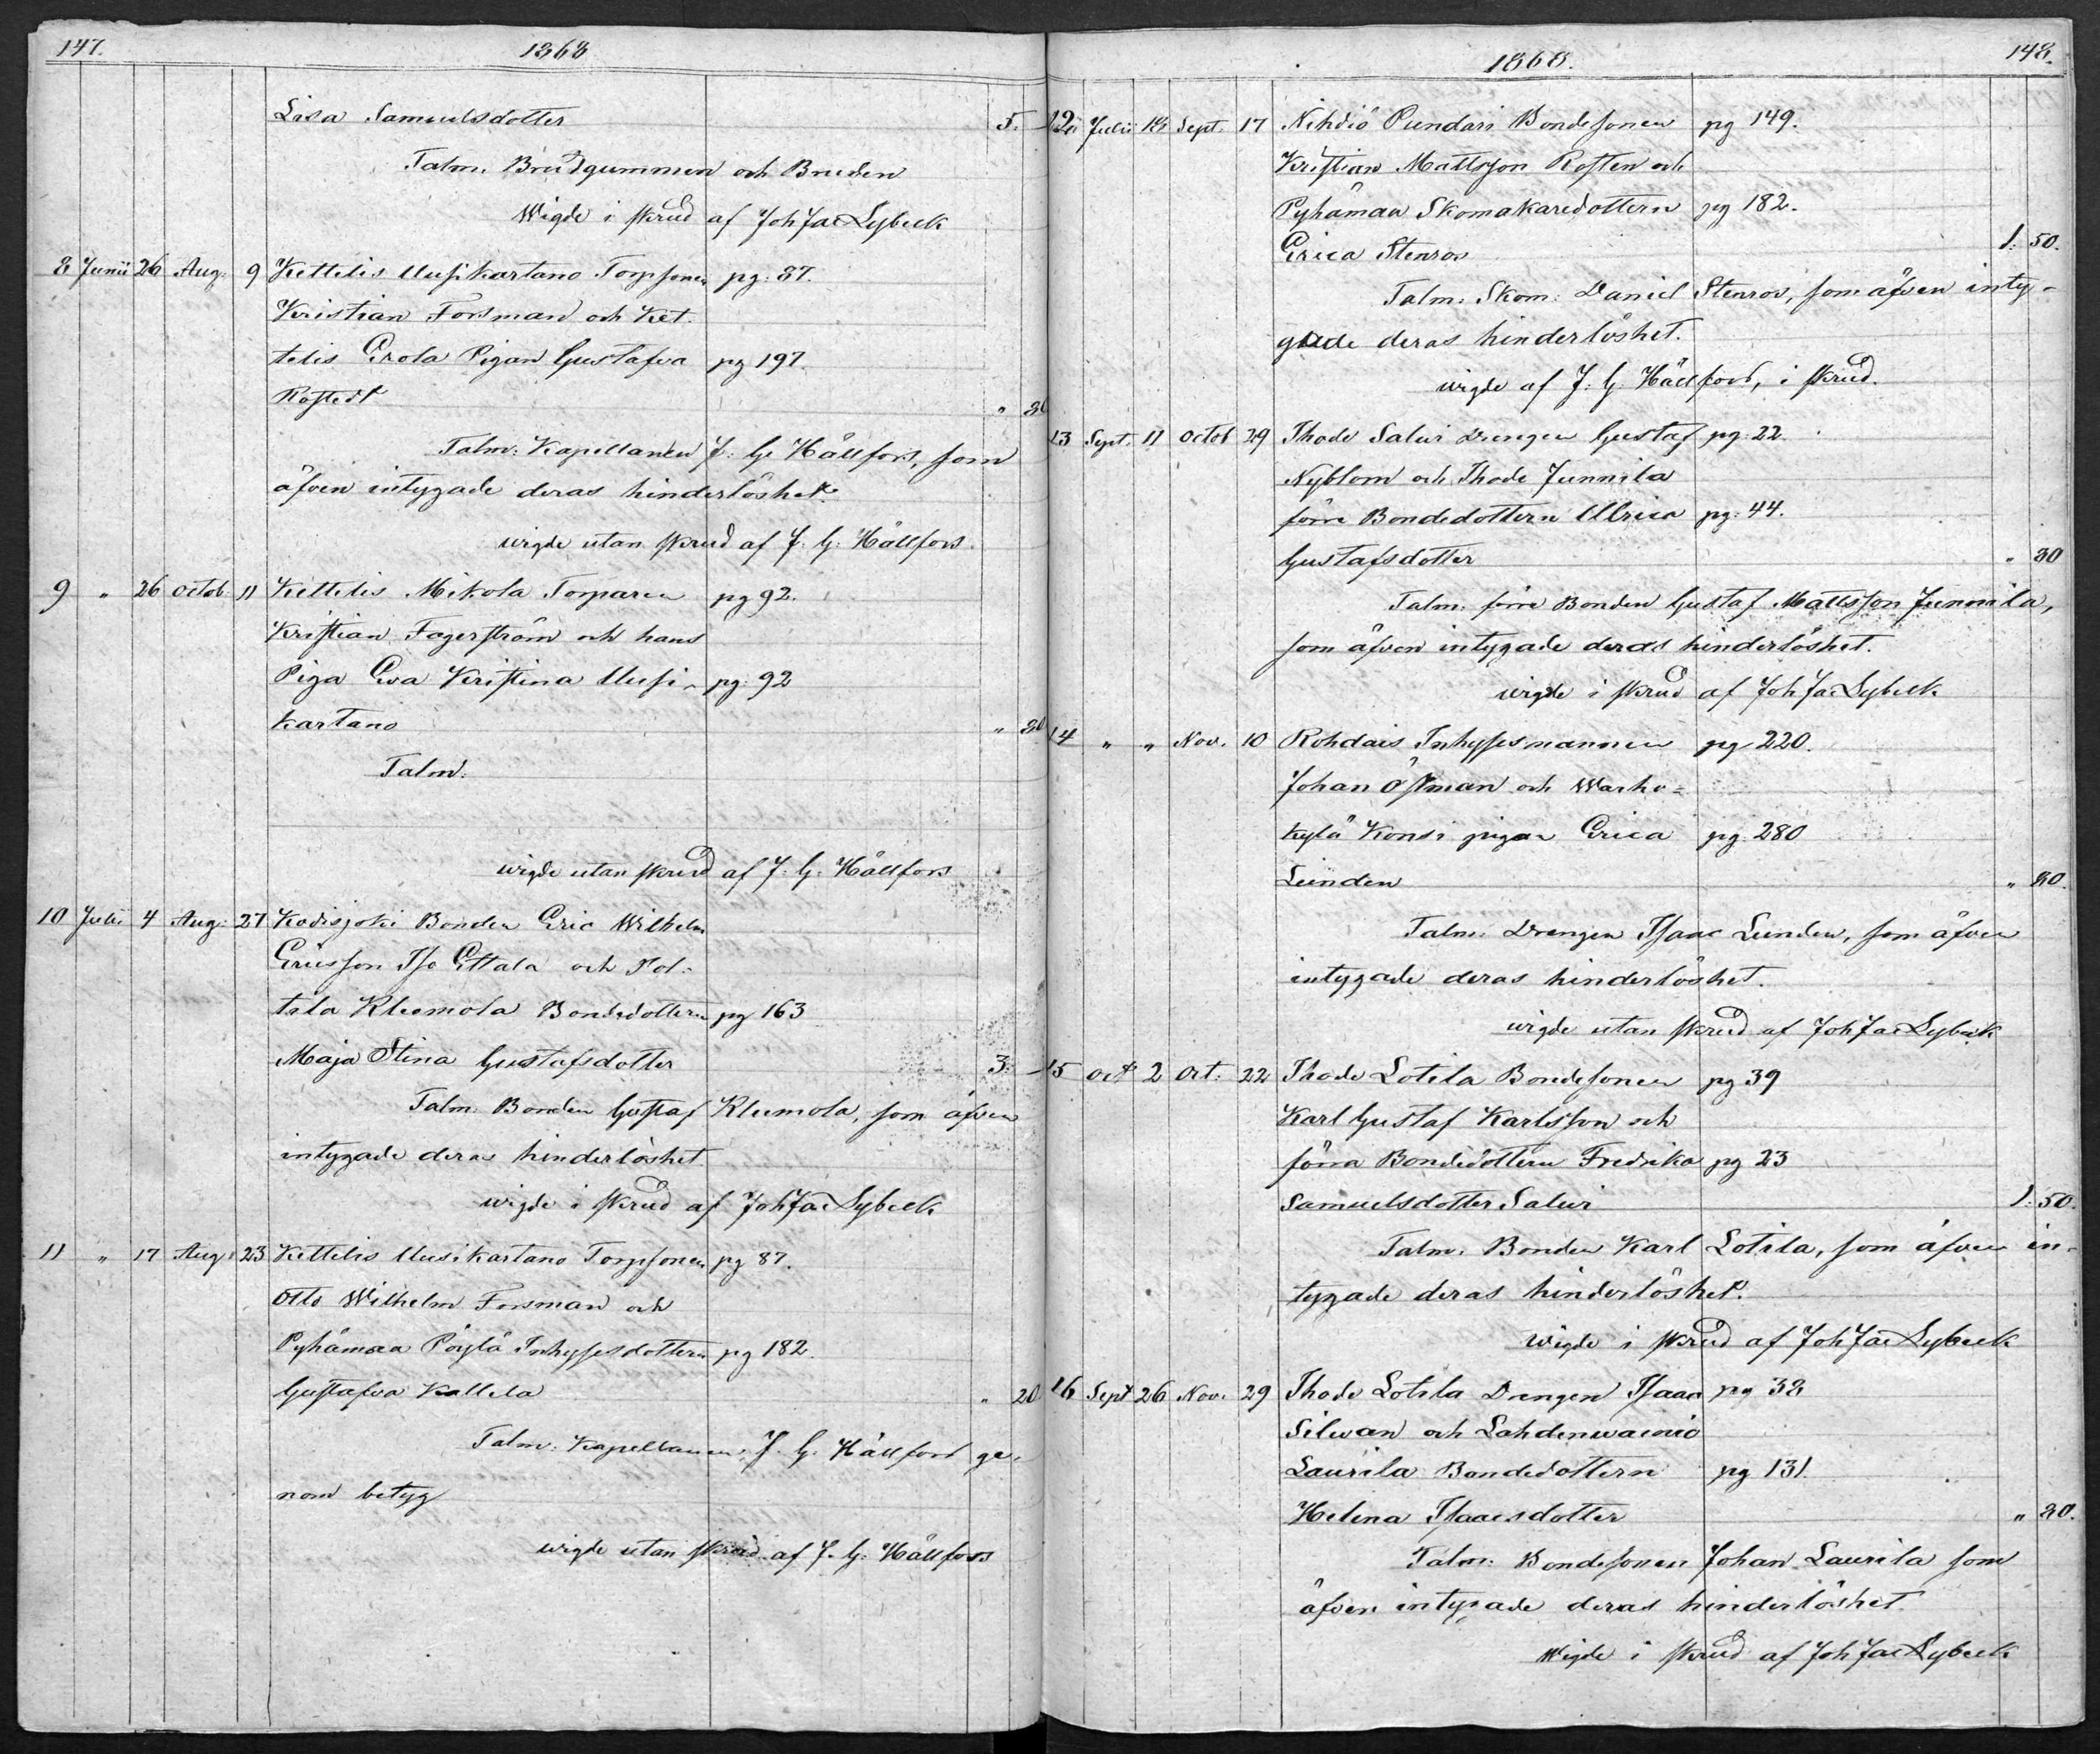 147.
1868
Lisa Samuelsdotter 5. –
Talm. Brudgummen och Bruden
Wigde i skrud af Joh Jac Lybeck
8 Junii 26 Aug. 9 Kettelis Uusikartano Torpsonen pg. 87.
Kristian Forsman och Ket-
telis Erola Pigan Gustafva pg 197.
Rostedt
Talm: Kapellanen J. G. Hällfors, som
äfven intygade deras hinderlöshet.
wigde utan skrud af J. G. Hällfors.
9 " 26 Octob. 11 Kettelis Mikola Torparen pg 92.
Kristian Fagerström och hans
Piga Eva Kristina Uusi- pg: 92
kartano
Talm:
wigde utan skrud af J. G. Hällfors
10 Julii 4 Aug. 27 Kodisjoki Bonden Eric Wilhelm
Ericsson Iso Ettala och Pol-
tila Kleemola Bondedottern pg 163
Maja Stina Gustafsdotter 3. –
Talm. Bonden Gustaf Kleemola, som äfven
intygade deras hinderlöshet.
wigde i skrud af Joh Jac Lybeck
11 " 17 Aug. 23 Kettelis Uusikartano Torpsonen pg 87.
Otto Wilhelm Forsman och
Pyhämaa Pöylä Inhysesdottern pg 182.
Gustafva Kallela " 20
Talm: Kapellanen J. G. Hällfors ge-
nom betyg
wigde utan skrud af J. G. Hällfors
1868.
148.
12 Julii 18 Sept. 17 Nihdiö Pundari Bondesonen pg 149.
Kristian Mattsson Rosten och
Pyhämaa Skomakaredottern pg 182.
Erica Stenros 1. 50.
Talm: Skom: Daniel Stenros, som äfven inty-
gade deras hinderlöshet.
wigde af J. G. Hällfors, i skrud.
13 Sept. 11 Octob 29 Ihode Salwi Drengen Gustaf pg. 22.
Nyblom och Ihode Junnila
förre Bondedottern Ulrica pg. 44.
Gustafsdotter " 80
Talm. förre Bonden Gustaf Mattsson Junnila,
som äfven intygade deras hinderlöshet.
wigde i skrud af Joh Jac Lybeck
14 " " Nov. 10 Rohdais Inhysesmannen pg 220.
Johan Östman och Warho-
kylä Konsi pigan Erica pg. 280
Linden " 80.
Talm. Drengen Isaac Linden, som äfven
intygade deras hinderlöshet.
wigde utan skrud af Joh Jac Lybeck
15 Oct 2 Oct. 22 Ihode Lotila Bondesonen pg 39
Karl Gustaf Karlsson och
förra Bondedottern Fredrika pg 23
Samuelsdotter Salwi 1. 50.
Talm. Bonden Karl Lotila, som äfven in-
tygade deras hinderlöshet.
Wigde i skrud af Joh Jac Lybeck
16 Sept 26 Nov. 29 Ihode Lotila Drengen Isaac pg 38
Silwan och Lahdenwainio
Laurila Bondedottern pg 131.
Helena Isaacsdotter " 80.
Talm: Bondesonen Johan Laurila som
äfven intygade deras hinderlöshet.
Wigde i skrud af Joh Jac Lybeck